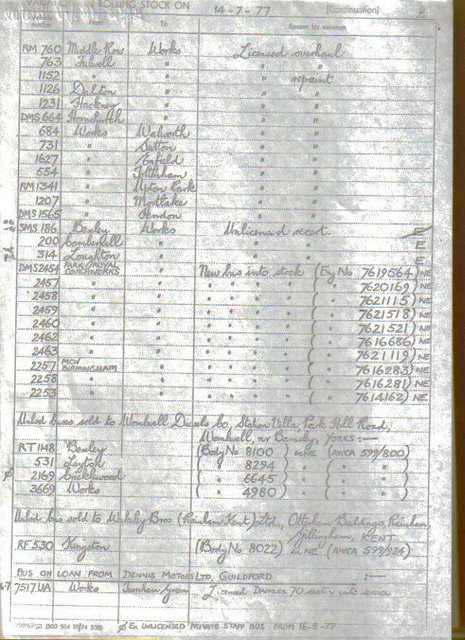 ROLLING STOCK ON 14-7-77 (Continuation)
From To Reason for variation
RM 760 Middle Row Works Licensed overhaul
763 Fulwell " " "
1152 " " " repaint
1126 Dalston " " "
1231 Hackney " " "
DMS 664 Hornchurch " " "
684 Works Walworth " "
731 " Sutton " "
1627 " Enfield " "
554 " Tottenham " "
RM 1341 " Upton Park " "
1207 " Mortlake " "
DMS 1565 " Hendon " "
SMS 186 Bexley Works Unlicensed recert. E
200 Camberwell " " E
314 Loughton " " E
DMS 2454 PARK ROYAL COACHWORKS New bus into stock (Eng No 7619564) NE
2457 " " " " " ( " 7620169) NE
2458 " " " " " ( " 7621115) NE
2459 " " " " " ( " 7621518) NE
2460 " " " " " ( " 7621521) NE
2462 " " " " " ( " 7616686) NE
2463 " " " " " ( " 7621119) NE
2257 MCW BIRMINGHAM " " " " ( " 7616283) NE
2258 " " " " " ( " 7616281) NE
2253 " " " " " ( " 7614162) NE
buses sold to Wombwell Diesels Co, Station Villa, Park Hill Road,
Wombwell, nr Barnsley, YORKS :—
RT 1148 Bexley (Body No 8100) NE (AWCA 599/800)
531 ( " 8294 ) " ( " )
ø 2169 Cricklewood ( " 6645 ) " ( " )
3669 Works ( " 4980 ) " ( " )
bus sold to Wakeley Bros (Rainham Kent) Ltd, Otterham Buildings, Rainham
Gillingham, KENT
RF 530 Kingston (Body No 8022) NE (AWCA 599/924)
BUS ON LOAN FROM DENNIS MOTORS LTD, GUILDFORD :—
7517 UA Works Turnham Green
ø Ex UNLICENSED PRIVATE STAFF BUS FROM 16-5-77